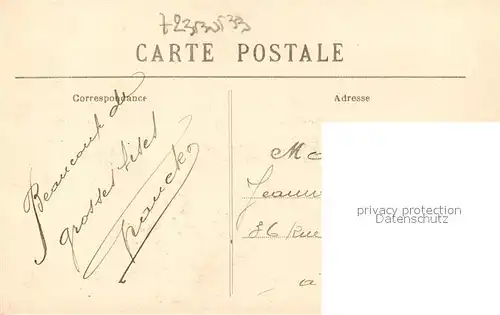 72530533
CARTE POSTALE
Correspondance
Adresse
Beaucoup de
grosses bises
Ma
Jeann
86 Rue
à
privacy protection
Datenschutz